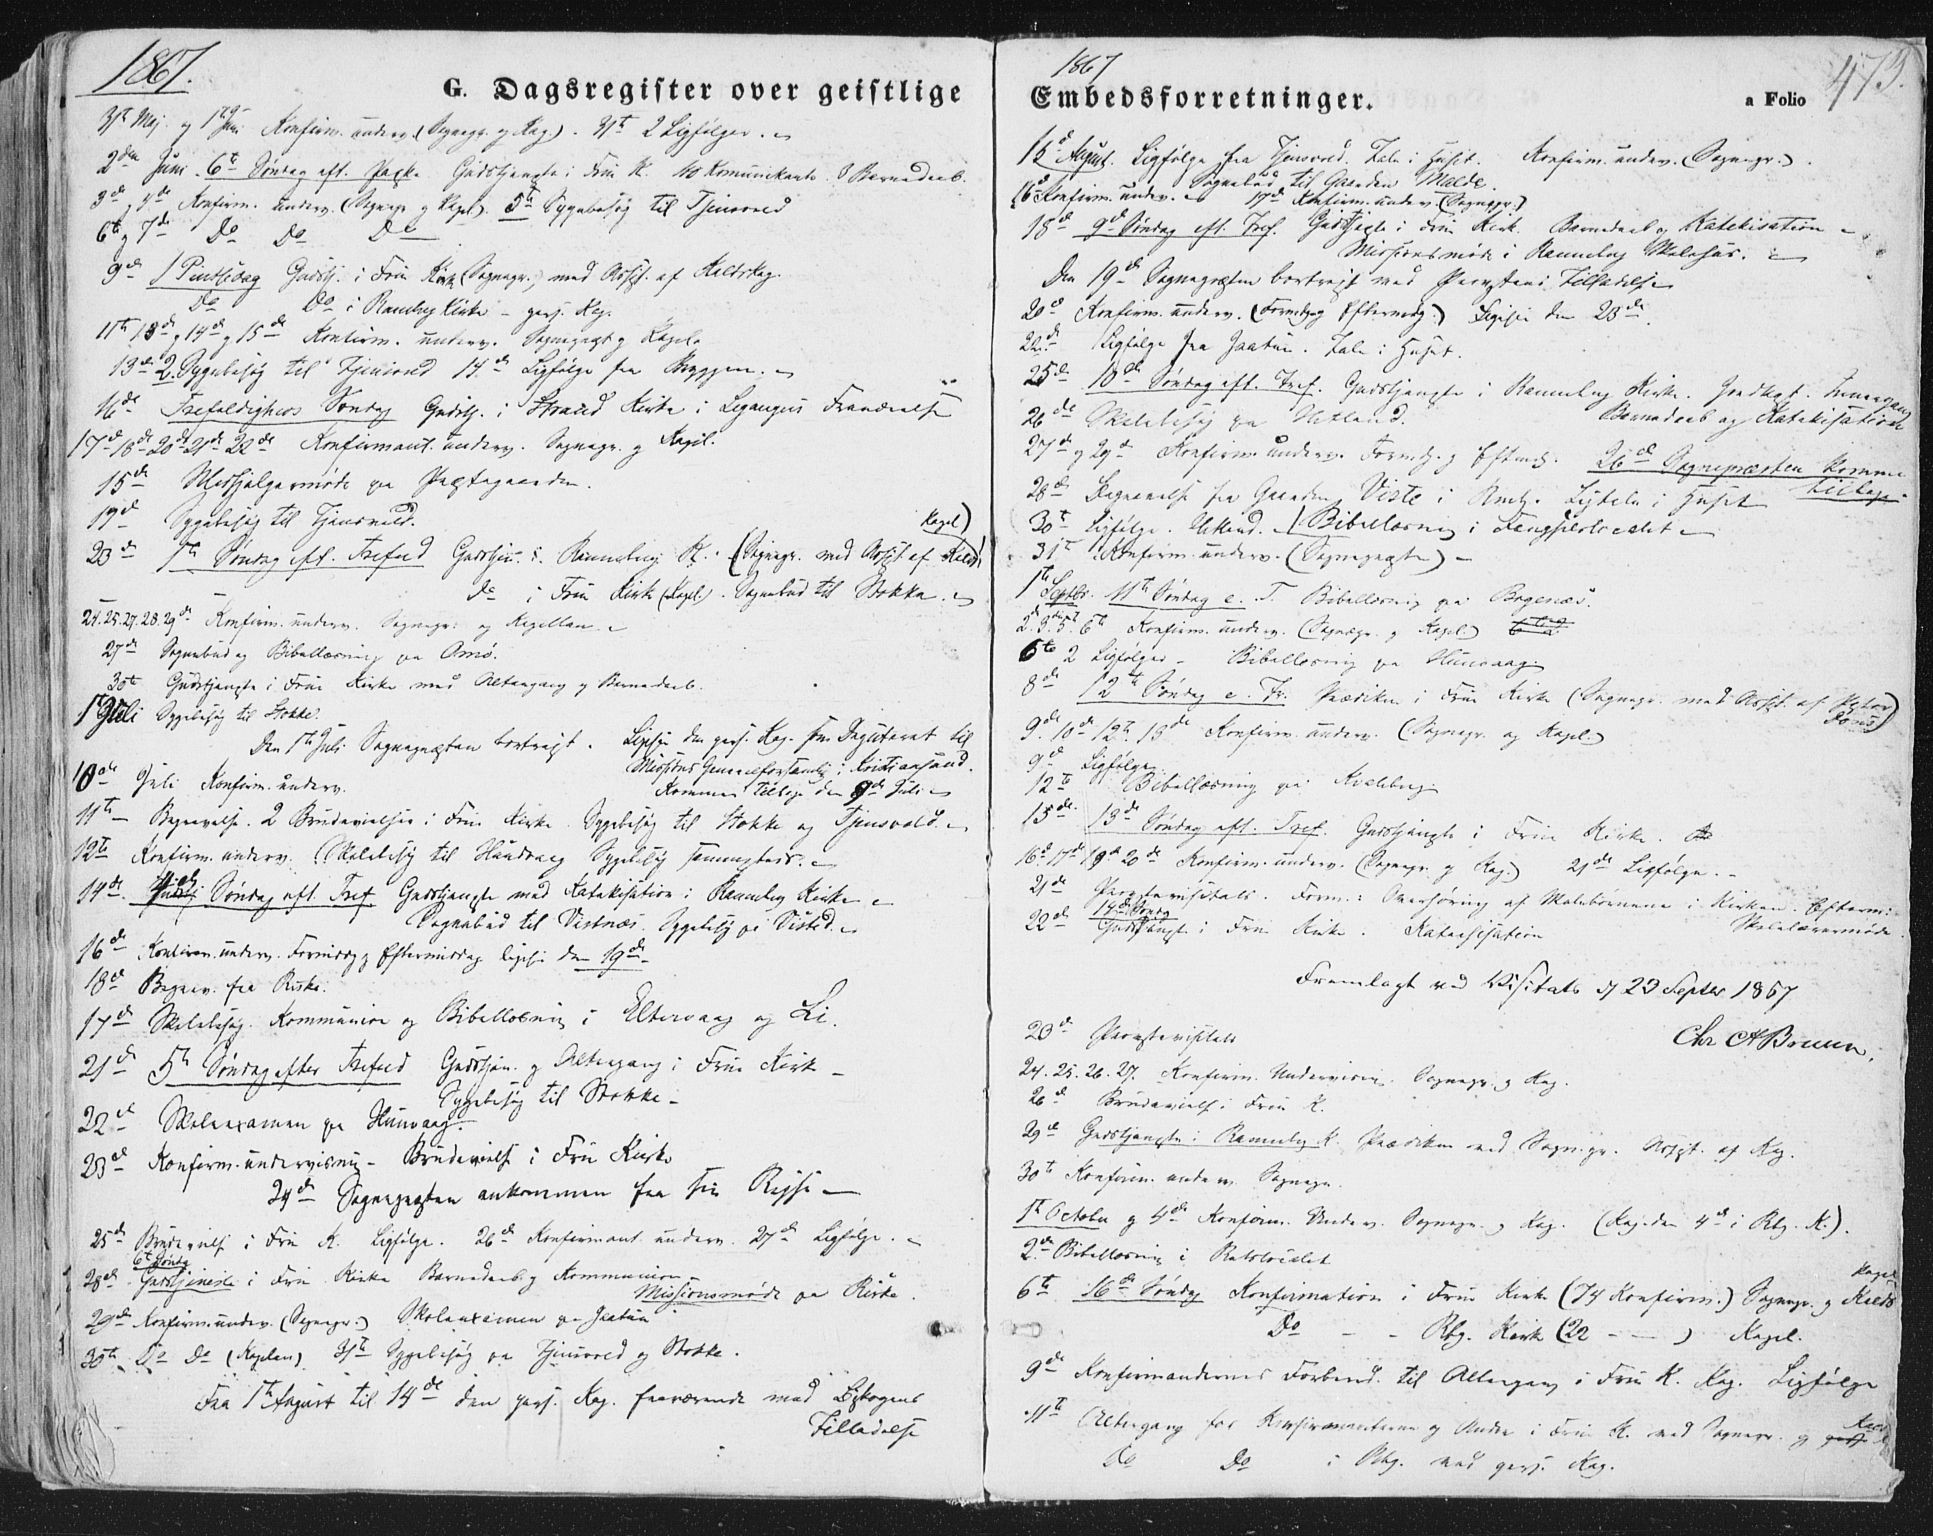 1867.
G. Dagsregister over geistlige
31te Maj og 1ste Juni Konfirm. underv. (Sognepr. og Kap.). 31te 2 Ligfølger.
2den Juni. 6te Søndag eft. Paske Gudstjeneste i Frue K. 110 Komunikanter. 8 Barnedaab.
3de og 4de Konfirm. underv. (Sognepr. og Kapel). 5te Sygebesøg til Tjensvold
6te og 7de Do Do Do
9de 1 Pintsedag Gudstj. i Frue Kirke (Sognepr.) med Assist. af Kaldskap.
Do Do i Randbergkirke pers. Kap.
11te 13de og 14de og 15de Konfirm. underv. Sogneprest og Kapel.
13de 2 Sygebesøg til Tjensvold 14de Ligfølge fra Byggen.
16de Trefoldigheds Søndag Gudstj. i Strand Kirke i Legangers Fraværelse
17de 18de 20de 21de 22de Konfirmant. underv. Sognepr. og Kapel.
15de Medhjælpermøde paa Præstegaarden.
19de Sygebesøg til Tjensvold.
23de 1ste Søndag eft. Trefold Gudstjen. i Randeberg K. (Sognepr. med Assist. af Kalds Kapel)
Do i Frue Kirke (Kapel.). Sognebud til Stokka.
24. 25. 27. 28. 29de Konfirm. underv. Sognepr. og Kapellan
27de Sognebud og Bibellæsning paa Omø.
30te Gudstjeneste i Frue Kirke med Altergang og Barnedaab.
1ste Juli Sygebesøg til Stokke.
Den 1ste Juli Sognepresten bortrejst. Ligesaa den pers. Kap. som Deputeret til
Missions Generalforsamling i Kristiansand.
10de Juli Konfirm. underv. Kommen tilbage den 9de Juli
11te Begravelse. 2 Brudevielser i Frue Kirke. Sygebesøg til Stokke og Tjensvold.
12te Konfirm. underv. Skolebesøg til Hundvaag Sygebesøg sammesteds.
14de 4de Søndag eft. Tref Gudstjeneste med Katekisation i Randeberg Kirke
Sognebud til Vestnæs. Sygebesøg paa Visted.
16de Konfirm. underv. Formiddag og Eftermiddag ligesaa den 19de
18de Begrav. fra Riske.
17de Skolebesøg. Kommunion og Bibellæsning i Eltervaag og Li.
21de 5te Søndag efter Trefold Gudstjen. og Altergang i Frue Kirke
Sygebesøg til Stokke
22de Skoleexamen paa Hunvaag.
23de Konfirm. undervisning Brudevielse i Frue Kirke
24de Sognepresten ankommen fra sin Rejse
25de Brudevielse i Frue K. Ligfølge. 26de Konfirmant. underv. 27de Ligfølge.
6te Sønda
28de Gudstjeneste i Frue Kirke Barnedaab og Kommunion
Missionsmøde paa Riske.
29de Konfirm. underv. (Sognepr.) Skoleexamen paa Jaatun
30te Do Do (Kapelan). 31te Sygebesøg paa Tjensvold og Stokke.
Fra 1ste August til 14de den pers. Kap. fraværende med Biskopens
Tilladelse
1867
Embedsforretninger.
a Folio 473.
15de August. Ligfølge fra Tjensvold. Tale i Huset. Konfirm. underv. (Sognepr.).
Sognebud til Gaarden Malde.
16de Konfirm. underv. 17de Konfirm. underv. (Sognepr.)
18de 9de Søndag eft. Tref. Gudstjeneste i Frue Kirk. Barnedaab og Katekisation
Missionsmøde i Randeberg Skolehus.
Den 19de Sognepresten bortrejst med Provstens Tilladelse
20de Konfirm. underv. (Formdg og Eftermdg.) Ligesaa den 23de.
22de Ligfølge fra Jaatun. Tale i Huset.
25de 10de Søndag eft. Tref. Gudstjeneste i Randeberg Kirke. Nedlagt.
Barnedaab og Katekisation
26de Skolebesøg paa Utland.
27de og 29de Konfirm. underv. Formdg. og Eftmdg. 26de Sognepresten kommen
tilbage.
28de Begravelse fra Gaarden Viste i Rndb. Ligtale i Huset
30te Ligfølge. Utland. 1 Bibellæsning i Fengselslocalet
31te Konfirm. underv. (Sognepresten)
1ste Septbr. 11te Søndag e. T. Bibellæsning paa Bogenæs.
2. 3. 5. 6te Konfirm. underv. (Sognepr. og Kapel.)
6te 2 Ligfølger Bibellæsning paa Hunvaag
8de 12te Søndag e. Tr. Prædiken i Frue Kirke (Sognepr. med Assist. af Pastor
Dons)
9de 10de 12te 13de Konfirm. underv. (Sognepr. og Kapel.)
9de Ligfølge
12te Bibellæsning paa Kvaleberg
15de 13de Søndag eft. Tref. Gudstjeneste i Frue Kirke.
16de 17de 19de 20de Konfirm. underv. (Sognepr. og Kap.) 21de Ligfølge.
21de Provstevisitats. Form.: Overhøring af Skolebørnene i Kirken. Efterm:
Skolelærermøde.
14de Søndg
22de Gudstjeneste i Frue Kirke. Katechisation
Fremlagt ved Visitats d 23 Septbr 1867
Chr A Bruun.
23de Provstevisitats
24. 25. 26. 27. Konfirm. Undervisn. Sognepr. og Kap.
26de Brudevielse i Frue K.
29de Gudstjeneste i Randeberg K. Prædiken ved Sognepr. Assist. af Kap.
30te Konfirm. underv. Sognepr.
1ste October og 4de Konfirm. Underv. Sognepr. og Kap. (Kap. den 4de i Rbg. K.).
2de Bibellæsning i Ratslocalet
6te 16de Søndag Konfirmation i Frue Kirke (74 Konfirm.) Sognepr. og Kalds Kapel
Do - - Rbg. Kirk (22 - -) Kapel.
9de Konfirmandernes Forbered. til Altergang i Frue K. Kap. Ligfølge
11te Altergang for Konfirmanterne og Andre i Frue K. ved Sognepr. og
Do Do i Rbg. ved pers. Kap.